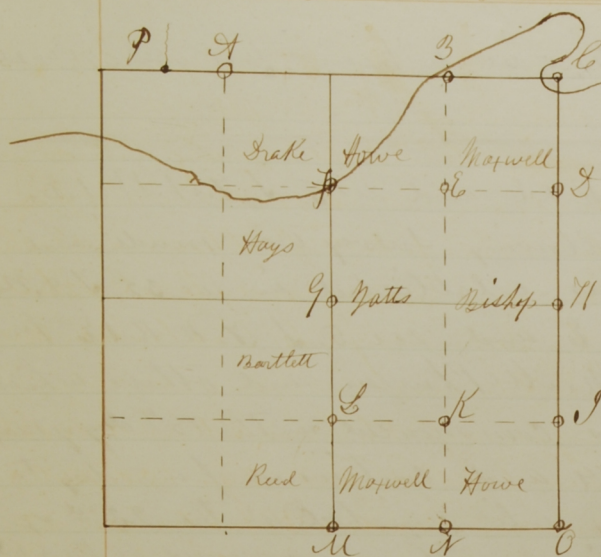 P A B C
Drake Howe Maxwell
F E D
Hays
G Natts Bishop H
Bartlett
L K J
Reed Maxwell Howe
M N O